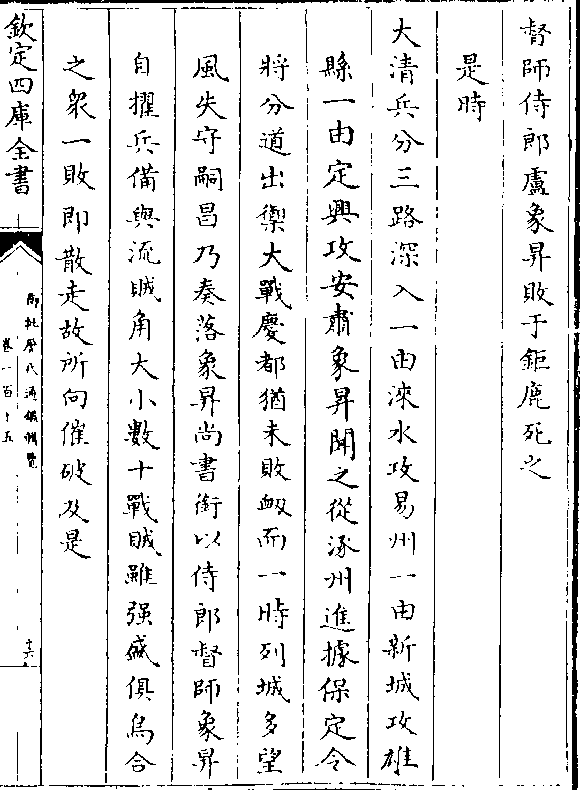 督師侍郎盧象昇敗于鉅鹿死之
是時
大清兵分三路深入一由淶水攻易州一由新城攻雄
縣一由定興攻安肅象昇聞之從涿州進據保定令
將分道出禦大戰慶都猶未敗衂而一時列城多望
風失守嗣昌乃奏落象昇尚書銜以侍郎督師象昇
自擢兵備與流賊角大小數十戰賊雖强盛俱烏合
之衆一敗即散走故所向催破及是
欽定四庫全書
御批歷代通鑑輯覽
卷一百十五
十六